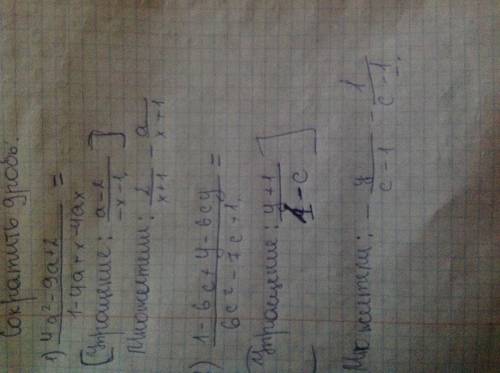 Сократить дробь.
1) 4a²-9a+2 / 1-4a+x-4ax =
[Упрощение: a-2 / -x-1 ]
Множители: 2 / x+1 - a / x+1
) 1-6c+y-6cy / 6c²-7c+1 =
[Упрощение: y+1 / 1-c ]
Множители: - y / c-1 - 1 / c-1.